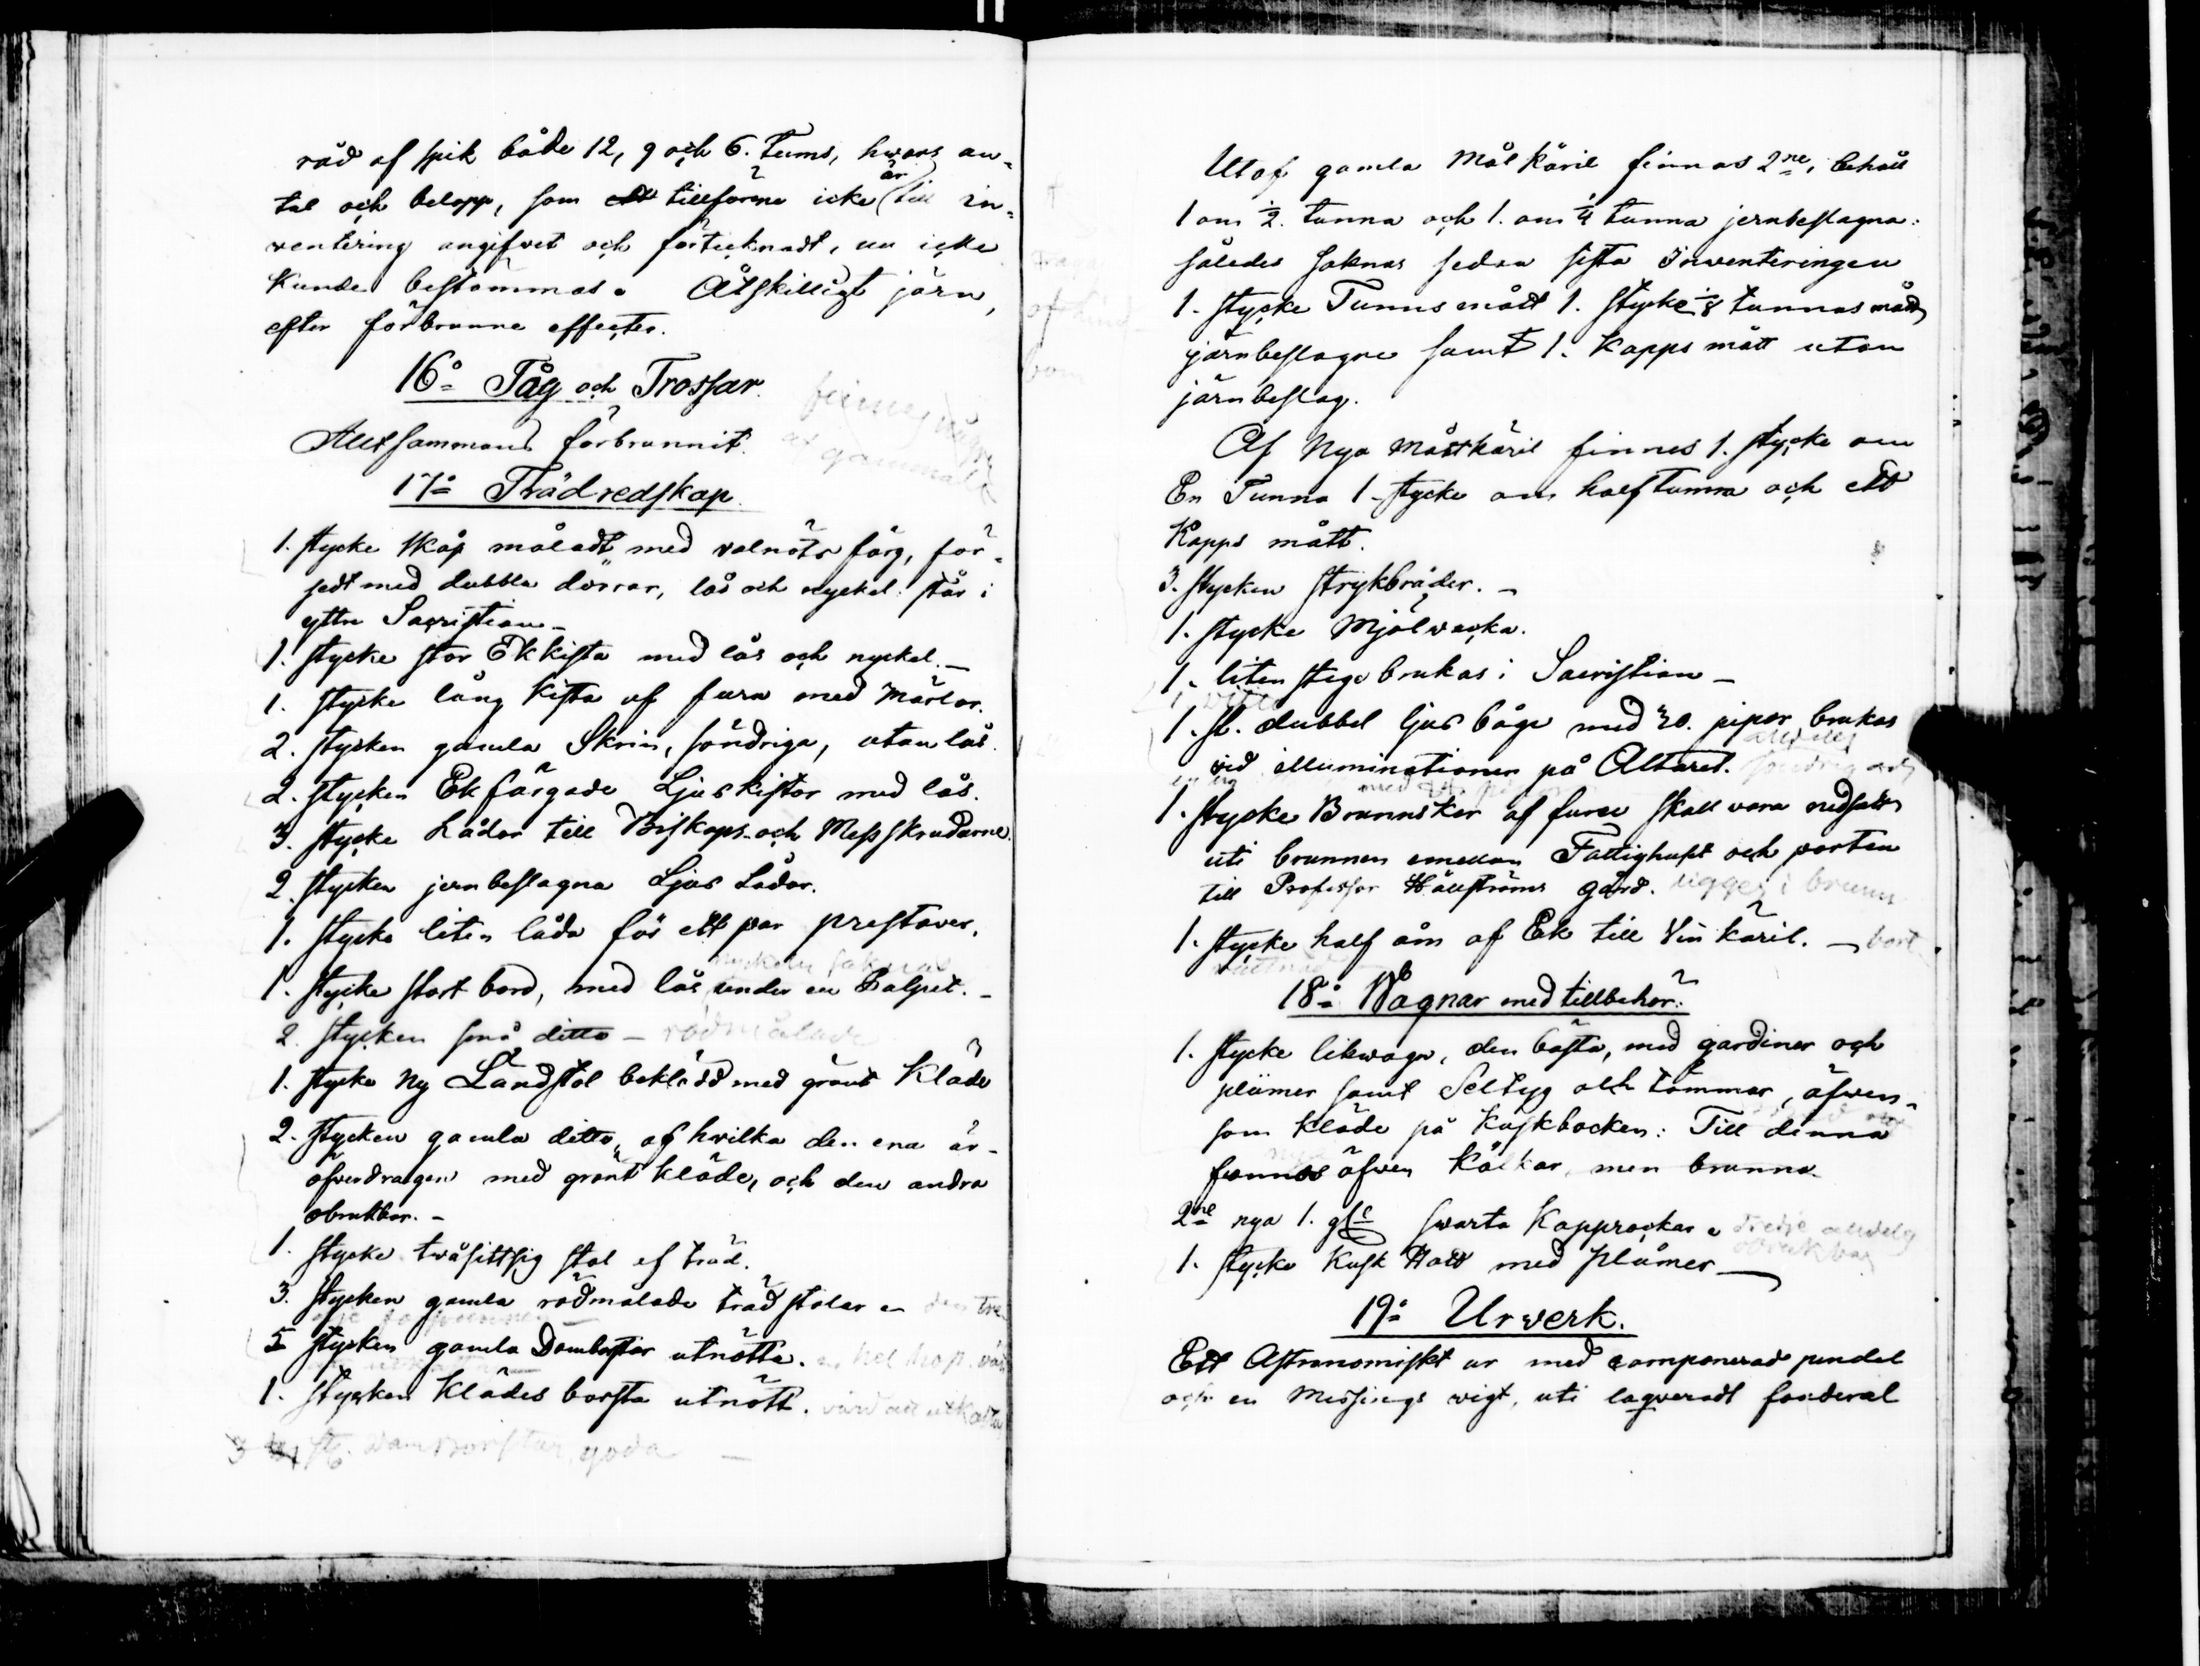 råd af spik både 12, 9 och 6. Tums, hwars an-
tal och belopp, som tillforene icke är till in-
ventering angifvet och förtecknadt, nu icke
kunde bestämmas. Åtskilligt järn,
efter förbrunne effecter.
16º Tåg och Trossar.
finnes några
af gammalt
Alltsammans förbrunnit.
17º Trädredskap.
1. stycke skåp måladt med valnöts färg, för-
sedt med dubbla dörrar, lås och nyckel: står i
yttre Sacristian_
1. stycke stor Ek kista med lås och nyckel._
1. stycke lång kista af furu med märlor.
2. stycken gamla Skrin, söndriga, utan lås.
2. stycken Ekfärgade Ljuskistor med lås.
3. stycke Lådor till Biskops- och Messskrudarne.
2. stycken jernbeslagna Ljus Lådor.
1. stycke liten låda för ett par prestaver.
nyckeln saknas
1. stycke stort bord, med lås under en Pulpet._
2. stycken små ditto _ rödmålade
1. stycke ny Landstol beklädd med grönt Kläde
2. stycken gamla ditto, af hvilka den ena är
öfverdragen med grönt kläde, och den andra
obrukbar._
1. stycke twåsittsig stol af träd.
3. stycken gamla rödmålade trädstolar _ den tre
5 stycken gamla Damborstar utnötta. hel hop
1. stycken Klädes borsta utnött. värd att utkasta
3 st. Damborstar, goda _
Utaf gamla Målkäril finnas 2ne, behåll
1 om 1/2. tunna och 1. om 1/4 tunna jernbeslagna:
således saknas sedan sista Inventeringen
1. stycke Tunns mått 1. stycke 1/8 tunnas mått
järnbeslagne samt 1. Kapps mått utan
järnbeslag.
Af Nya Måttkäril finnes 1. stycke om
En Tunna 1. stycke om half Tunna och ett
Kapps mått.
3. stycken strykbräder._
1. stycke Mjölwacka.
1. liten stege brukas i Sacristian _
1 ditto
1. st. dubbel ljus båge med 20. pipor brukas
alldeles
vid illuminationen på Altaret. söndrig
1. stycke Brunnskar af furu skall vara nedsatt
uti brunnen emellan Fattighuset och porten
till Professor Hällströms gård. ligger i brunn
1. stycke half åm af Ek till Vin käril. _ bort
ruttnad
18º Wagnar med tillbehör.
1. stycke likwagn, den bästa, med gardiner och
plümer samt Seltyg och tömmar, äfwen-
som kläde på kuskbocken: Till denna
funnos äfwen Kälkar, men brunno
2ne nya 1. gle swarta Kapprockar. tredje alldeles
obrukbar
1. stycke Kusk Hatt med plümer _
19º Urverk.
Ett Astronomiskt ur med componerad pendel
och en Messings vigt, uti lagveradt fouderal